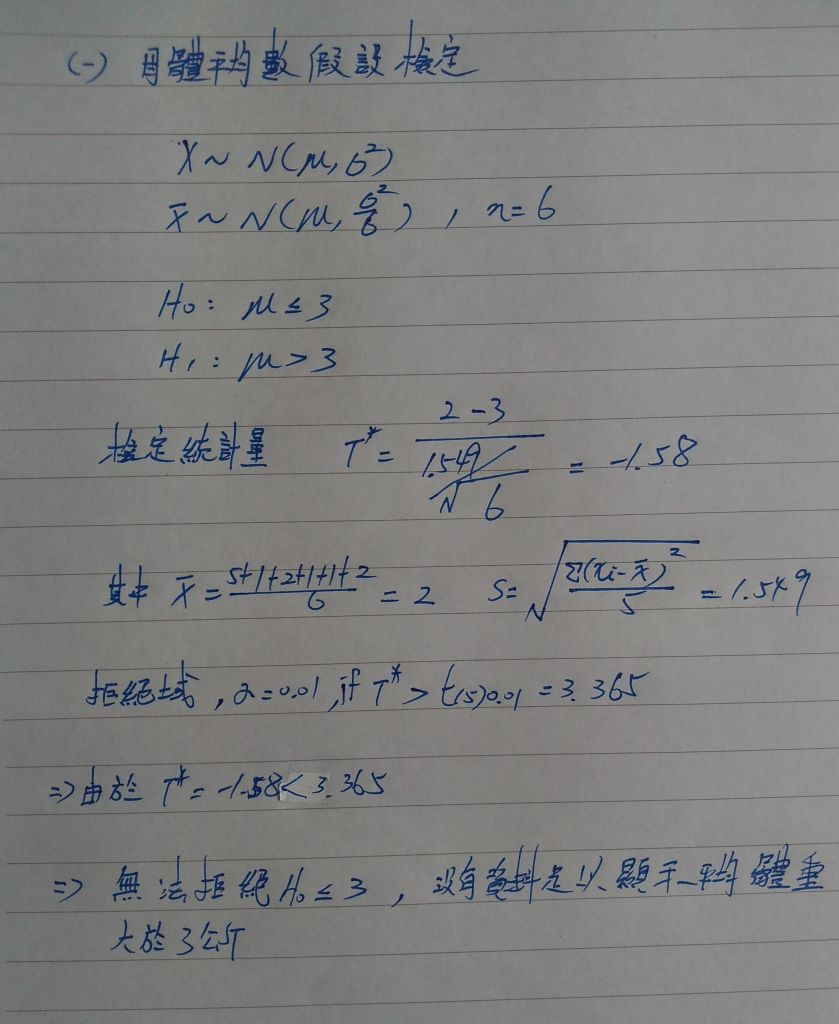 (一) 母體平均數假設檢定
X ~ N(μ, σ²)
x̄ ~ N(μ, σ²/6), n=6
H₀: μ ≤ 3
H₁: μ > 3
檢定統計量 T* = (2-3)/(1.549/√6) = -1.58
其中 x̄ = (5+1+2+1+1+2)/6 = 2 S = √(Σ(xi-x̄)²/5) = 1.549
拒絕域, α=0.01, if T* > t(5)0.01 = 3.365
⇒ 由於 T* = -1.58 < 3.365
⇒ 無法拒絕 H₀ ≤ 3, 沒有資料足以顯示平均體重
大於3公斤